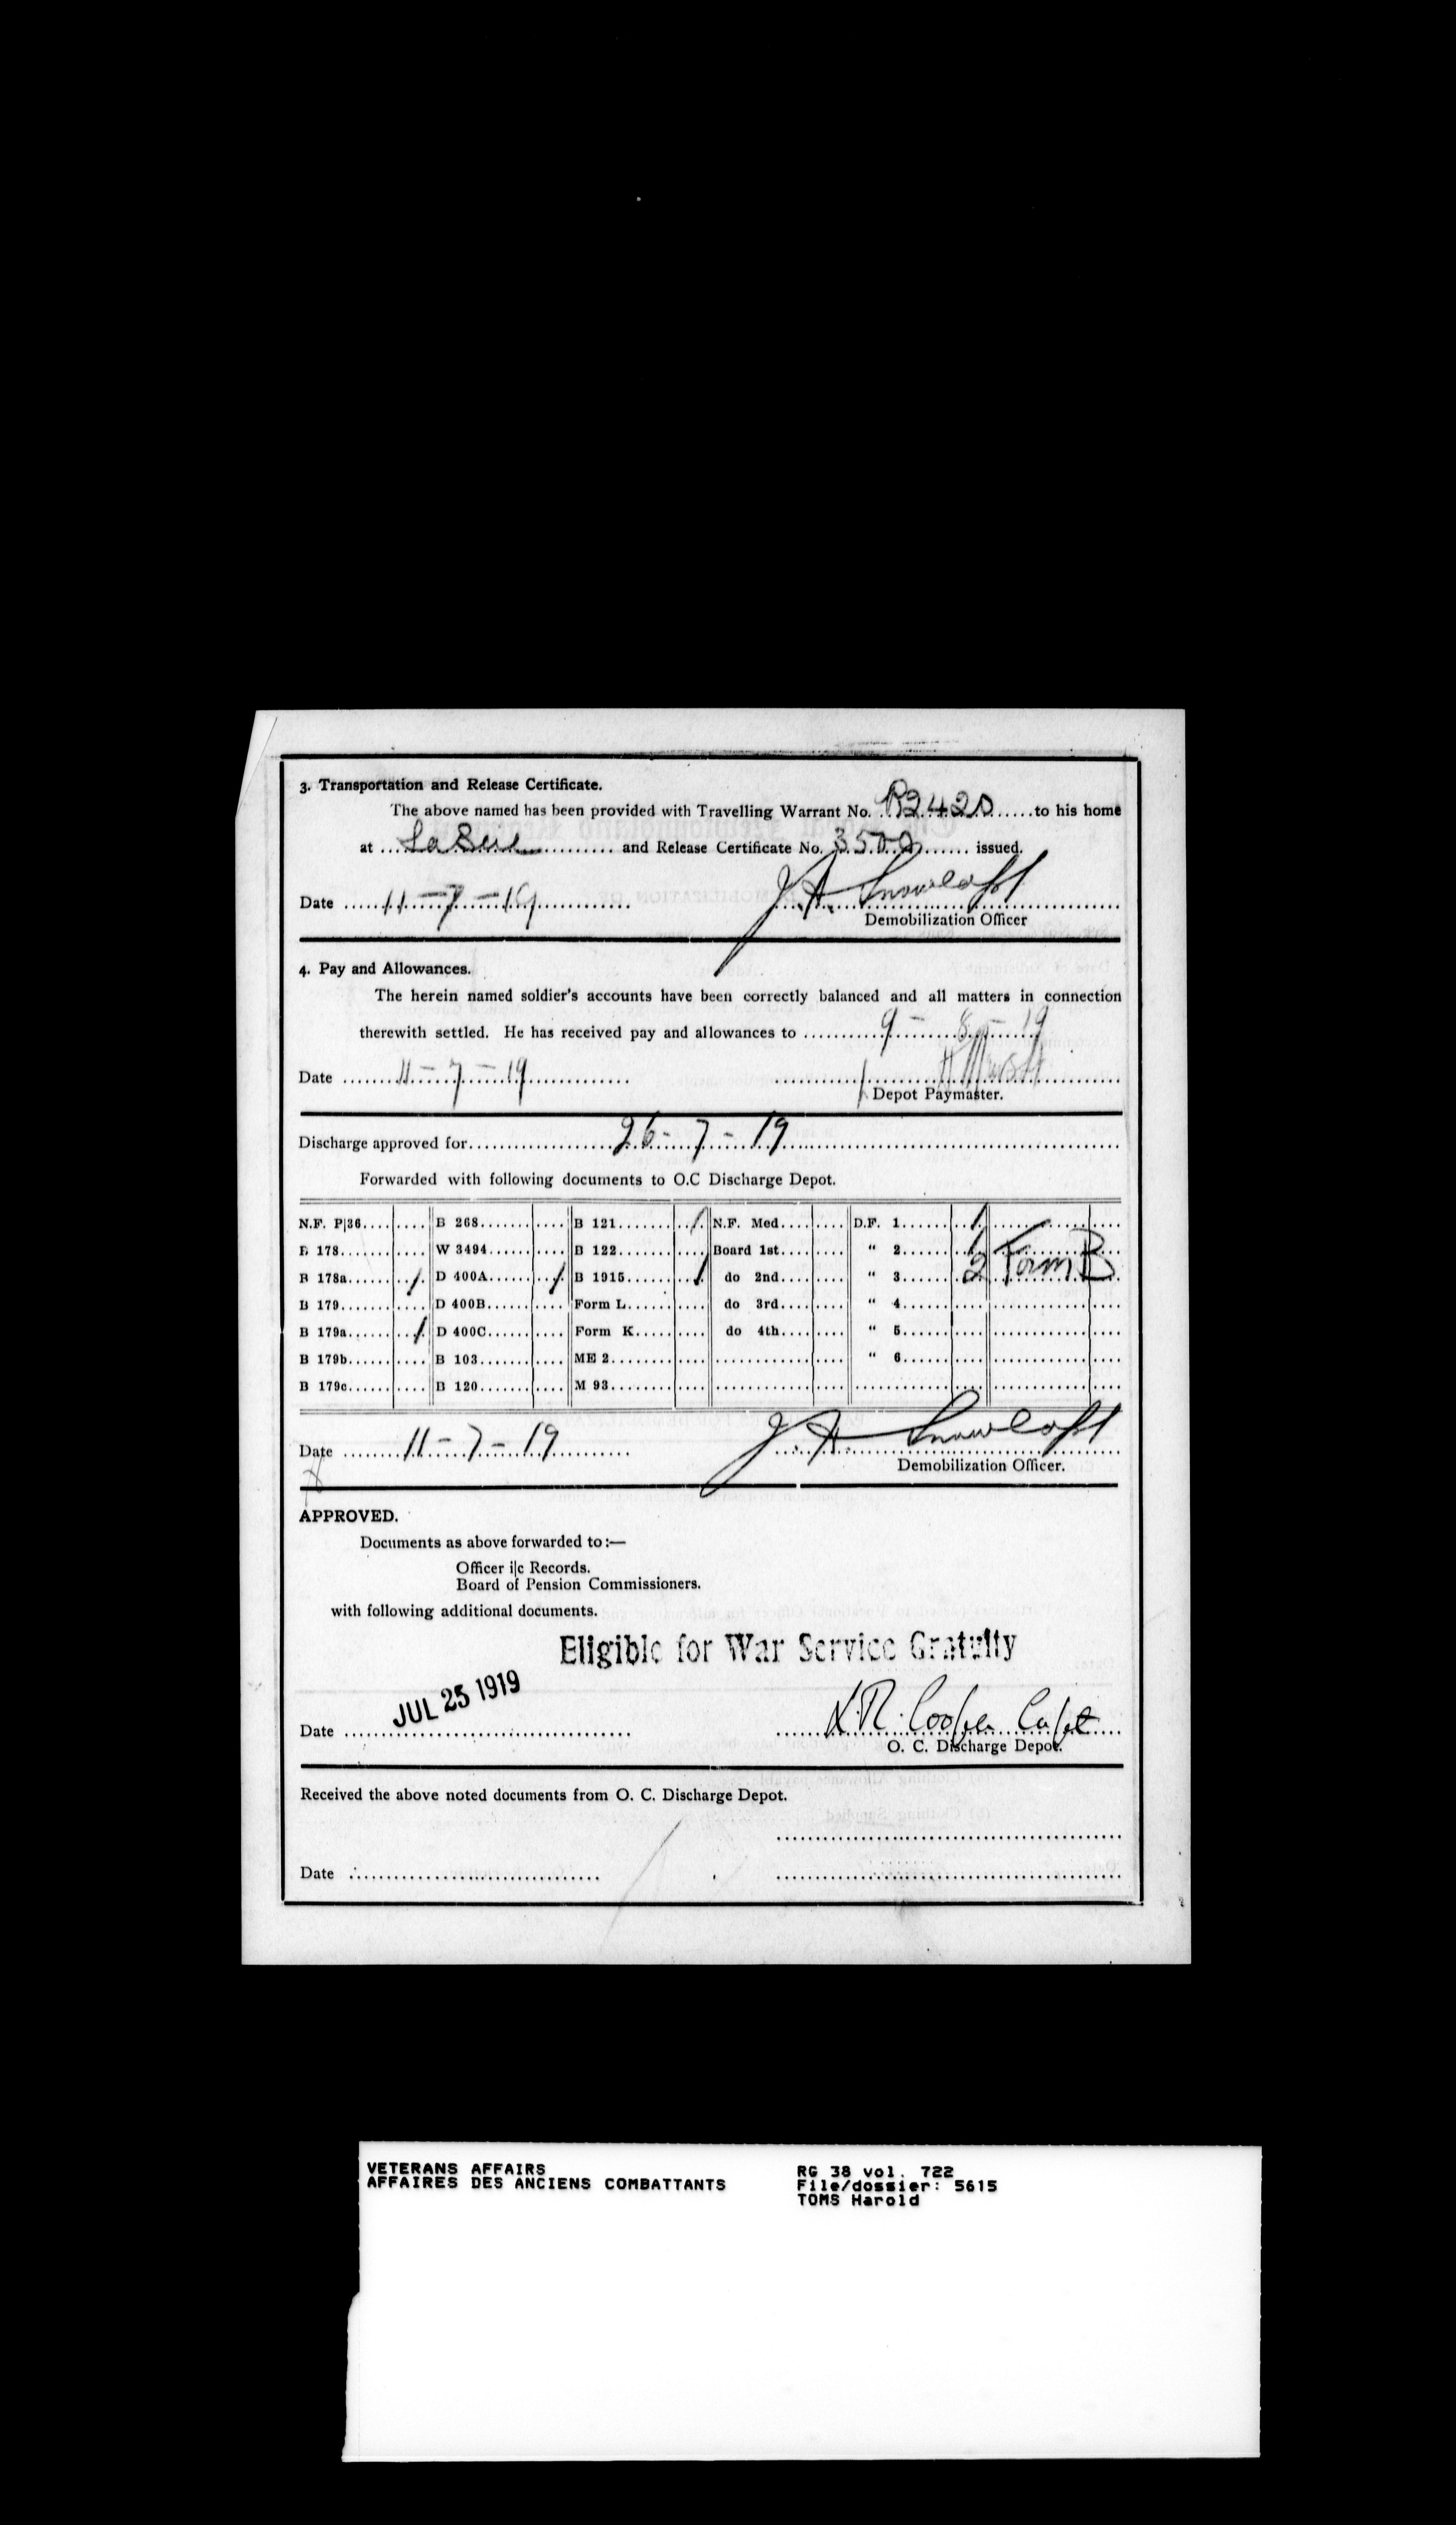 3. Transportation and Release Certificate.
The above named has been provided with Travelling Warrant No. R2420 to his home
at and Release Certificate No. 3500 issued.
Date 11-7-19
Demobilization Officer
4. Pay and Allowances.
The herein named soldier's accounts have been correctly balanced and all matters in connection
therewith settled. He has received pay and allowances to 9-8-19
Date 11-7-19
Depot Paymaster.
Discharge approved for 26-7-19
Forwarded with following documents to O.C Discharge Depot.
N.F. P|36 B 268 B 121 / N.F. Med. D.F. 1 1
B 178 W 3494 B 122 Board 1st " 2 1
B 178a / D 400A / B 1915 / do 2nd " 3 2 Form B
B 179 D 400B Form L do 3rd " 4
B 179a / D 400C Form K do 4th " 5
B 179b B 103 ME 2 " 6
B 179c B 120 M 93
Date 11-7-19
Demobilization Officer.
APPROVED.
Documents as above forwarded to:—
Officer i|c Records.
Board of Pension Commissioners.
with following additional documents.
Eligible for War Service Gratuity
Date JUL 25 1919 Cooper Capt
O. C. Discharge Depot.
Received the above noted documents from O. C. Discharge Depot.
Date
VETERANS AFFAIRS RG 38 vol. 722
AFFAIRES DES ANCIENS COMBATTANTS File/dossier: 5615
TOMS Harold